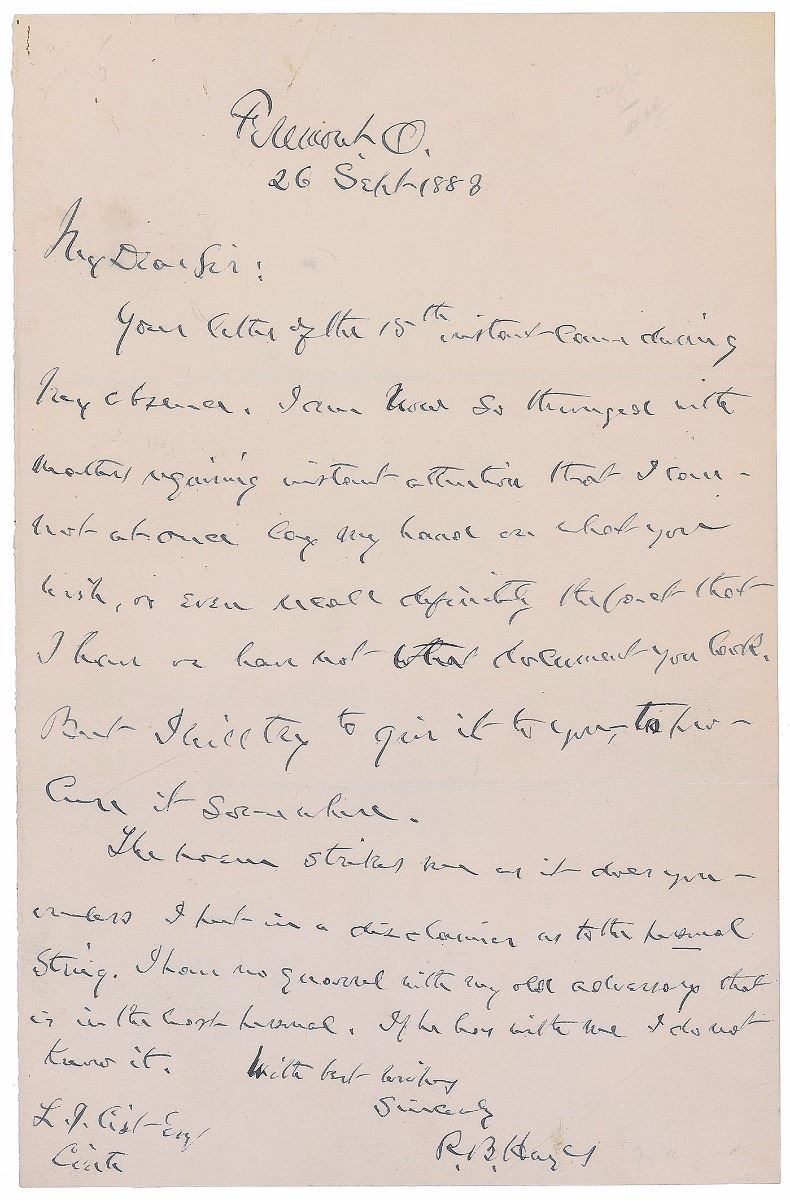 Fremont O.
26 Sept 1883
My Dear Sir:
Your letter of the 15th instant came during
my absence. I am now so thronged with
matters requiring instant attention that I can-
not at once lay my hand on what you
wish, or even recall definitely the fact that
I have or have not what document you look.
But I will try to give it to you, to pro-
cure it somewhere.
The poem strikes me as it does you-
unless I put in a disclaimer as to the personal
sting. I have no quarrel with my old adversary that
is in the least personal. If he has with me I do not
know it. With best wishes
Sincerely
R. B. Hayes
L. J. Cist Esq
Cinti